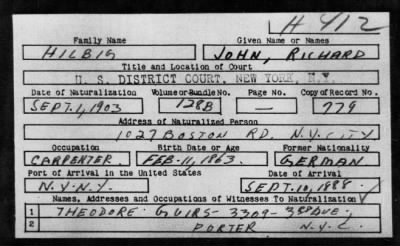 H 412
Family Name Given Name or Names
HILBIG JOHN, RICHARD
Title and Location of Court
U. S. DISTRICT COURT, NEW YORK, N.Y.
Date of Naturalization Volume or Bundle No. Page No. Copy of Record No.
SEPT. 1, 1903 128B — 779
Address of Naturalized Person
1027 BOSTON RD. N.Y. CITY
Occupation Birth Date or Age Former Nationality
CARPENTER FEB. 11, 1863. GERMAN
Port of Arrival in the United States Date of Arrival
N.Y. N.Y. SEPT. 10, 1888
Names, Addresses and Occupations of Witnesses To Naturalization
1 THEODORE GUIRS - 3309 - 3RD AVE.
2 PORTER N.Y.C.